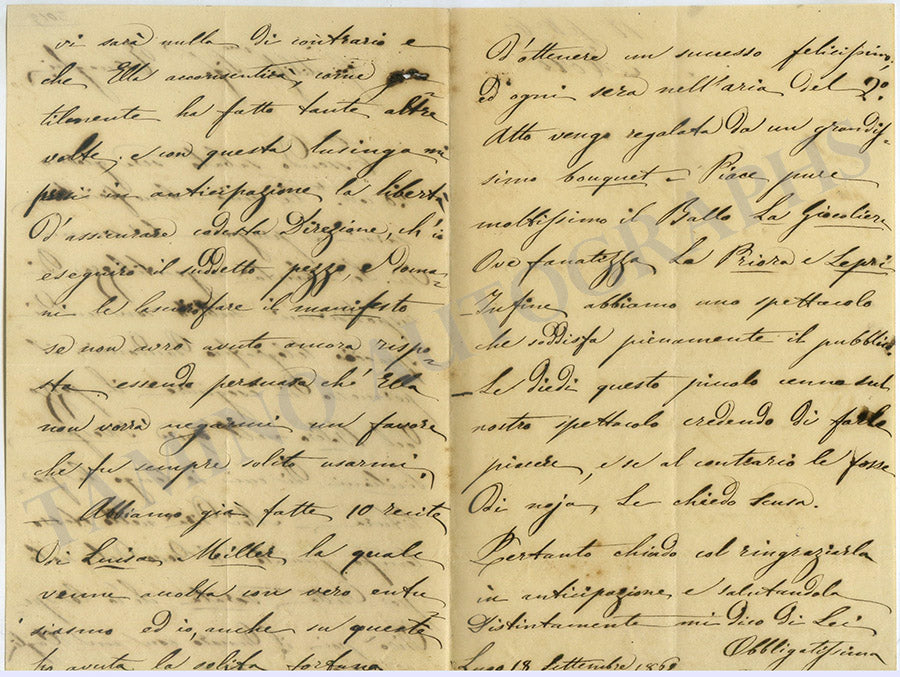 vi sarà nulla di contrario e
che Ella acconsentirà, come gen=
tilmente ha fatto tante altre
volte, e con questa lusinga mi
presi in anticipazione la libertà
d'assicurare codesta Direzione, ch'io
eseguirò il suddetto pezzo, e doma=
ni le lascio fare il manifesto
se non avrò avuto ancora rispo=
sta essendo persuasa ch'Ella
non vorrà negarmi un favore
che fu sempre solito usarmi,
Abbiamo già fatte 10 recite
di Luisa Miller la quale
venne accolta con vero entu
siasmo ed io, anche su queste
ho avuta la solita fortuna
d'ottenere un successo felicissimo
ed ogni sera nell'aria del 2º.
Atto vengo regalata da un grandis=
simo bouquet - Piace pure
moltissimo il Ballo La Giocoliera
Ove fanatizza La Priora e Lepri
Infine, abbiamo uno spettacolo
che soddisfa pienamente il pubblico
Le diedi questo piccolo cenno sul
nostro spettacolo credendo di farle
piacere, e se al contrario le fosse
di noja, Le chiedo scusa.
Pertanto chiudo col ringraziarla
in anticipazione, e salutandola
Distintamente mi dico di Lei
Obbligatissima
Lugo 18 Settembre
TAMINO AUTOGRAPHS